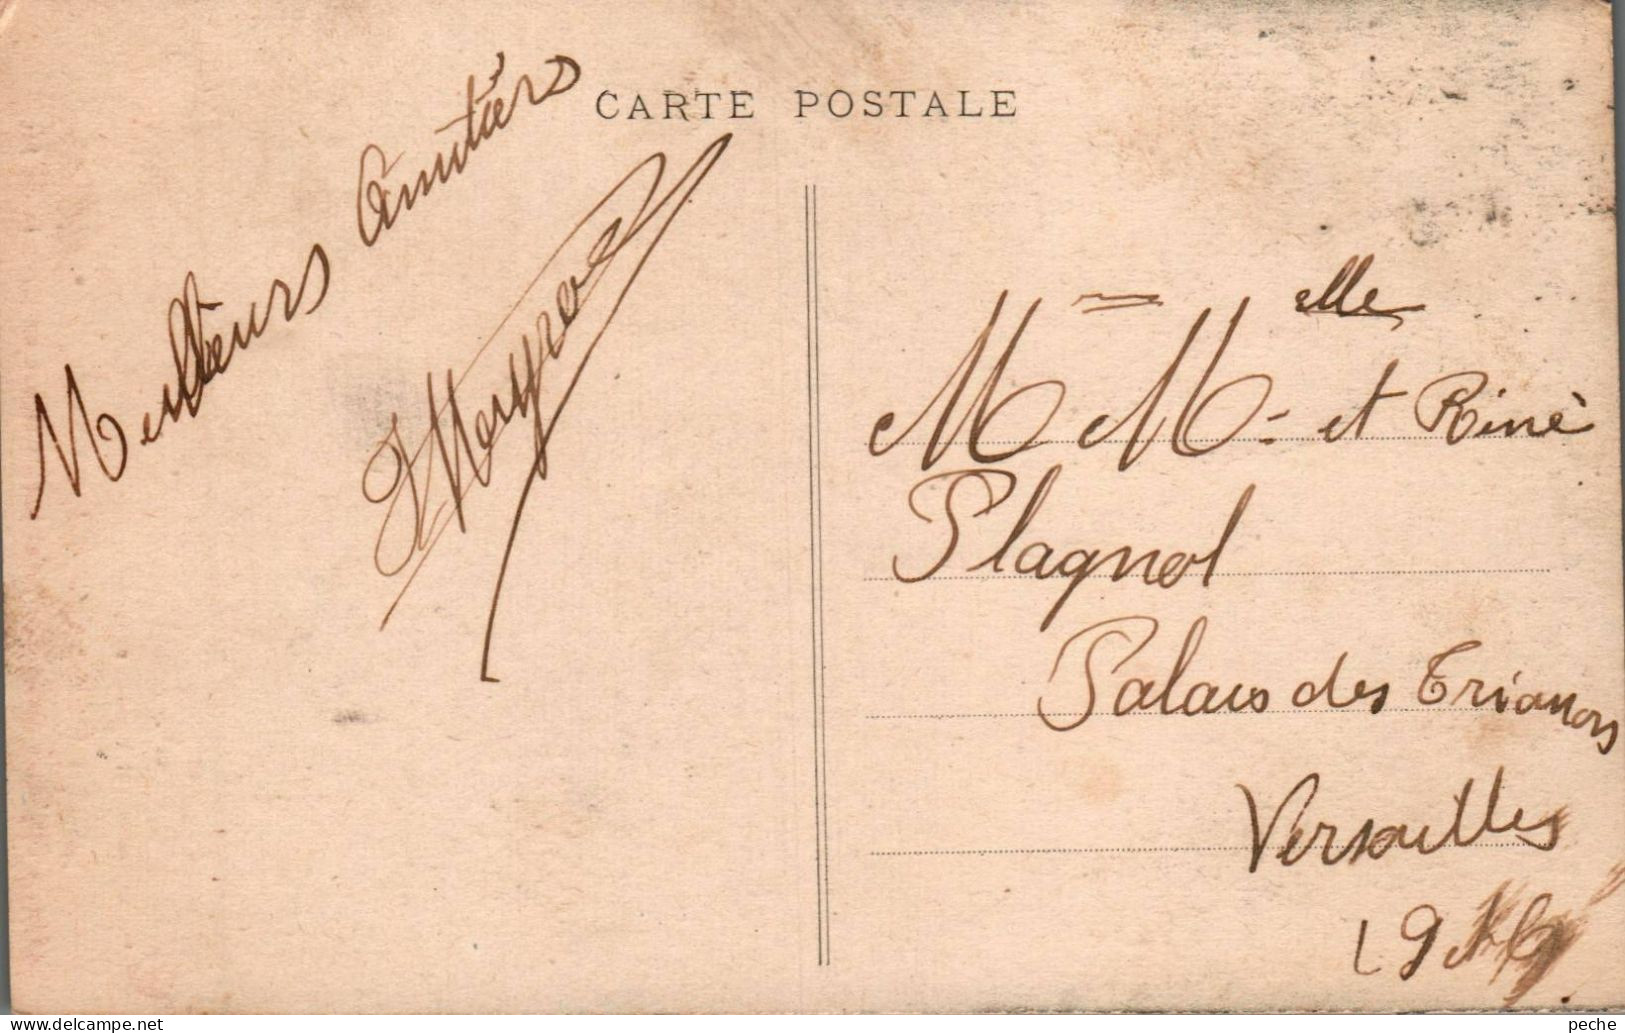 CARTE POSTALE
Meilleurs Amitiérs
M M elle et Riné
Plagnol
Palais des Trianons
Versailles
www.delcampe.net
peche